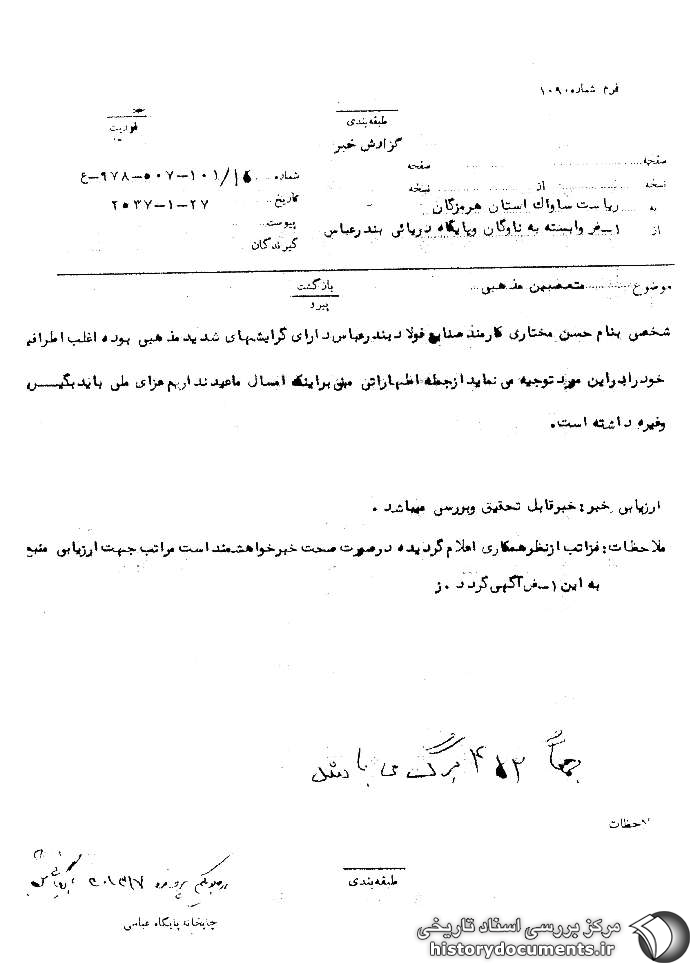 فرم شماره ۱۰۹۰
طبقه‌بندی
فوریت
گزارش خبر
صفحه
صفحه
شماره ۱۰۱/۱۵-۵۰۷-۹۷۸-ع
نسخه
از
نسخه
تاریخ ۲۷-۱-۲۵۳۷
به ریاست ساواک استان هرمزگان
پیوست
از ۱-ض وابسته به ناوگان و پایگاه دریائی بندرعباس
گیرندگان
موضوع متعصبین مذهبی
بازگشت
پیرو
شخصی بنام حسن مختاری کارمند صنایع فولاد بندرعباس دارای گرایشهای شدید مذهبی بوده اغلب اطرافیان
خود را در این مورد توجیه می نماید از جمله اظهاراتی مبنی براینکه امسال ما عید نداریم عزای ملی باید بگیریم
وغیره داشته است.
ارزیابی خبر: خبر قابل تحقیق و بررسی میباشد.
ملاحظات: مراتب از نظر همکاری اعلام گردیده در صورت صحت خبر خواهشمند است مراتب جهت ارزیابی منبع
به این ۱-ض آگهی گردد. ز
جمعاً برگ می باشد
ملاحظات
طبقه‌بندی
چاپخانه پایگاه عباسی
مرکز بررسی اسناد تاریخی
historydocuments.ir